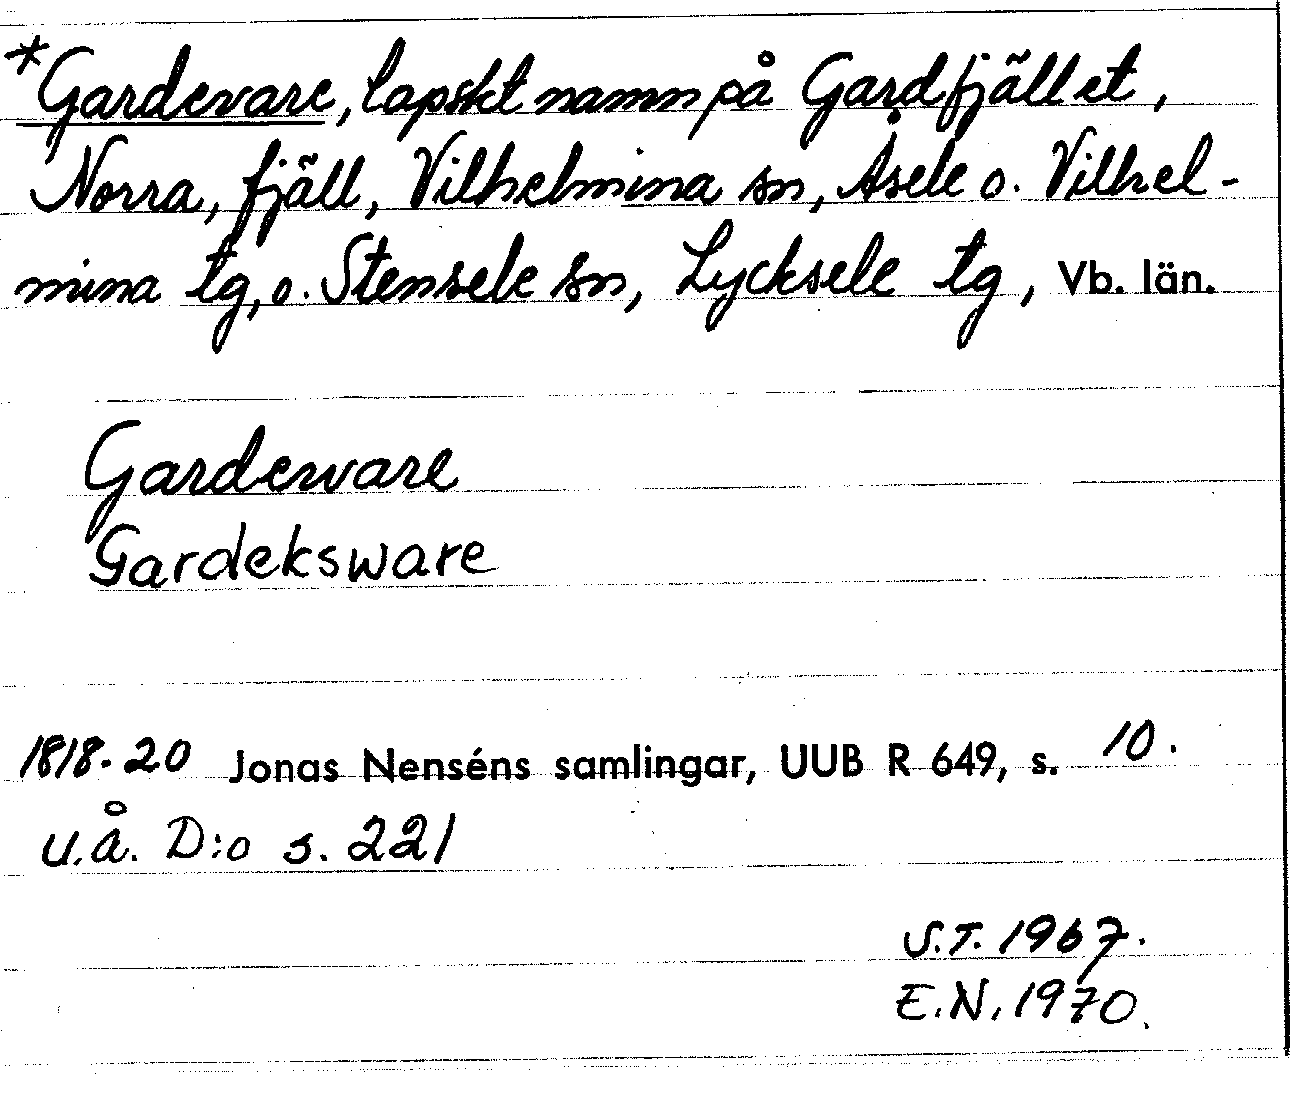 *Gardevare, lapskt namn på Gardfjället,
Norra, fjäll, Vilhelmina sn, Åsele o. Vilhel-
mina tg, o. Stensele sn, Lycksele tg, Vb. län.
Gardevare
Gardeksware
1818-20 Jonas Nenséns samlingar, UUB R 649, s. 10.
u.å. D:o s. 221
S.T. 1967.
E.N. 1970.